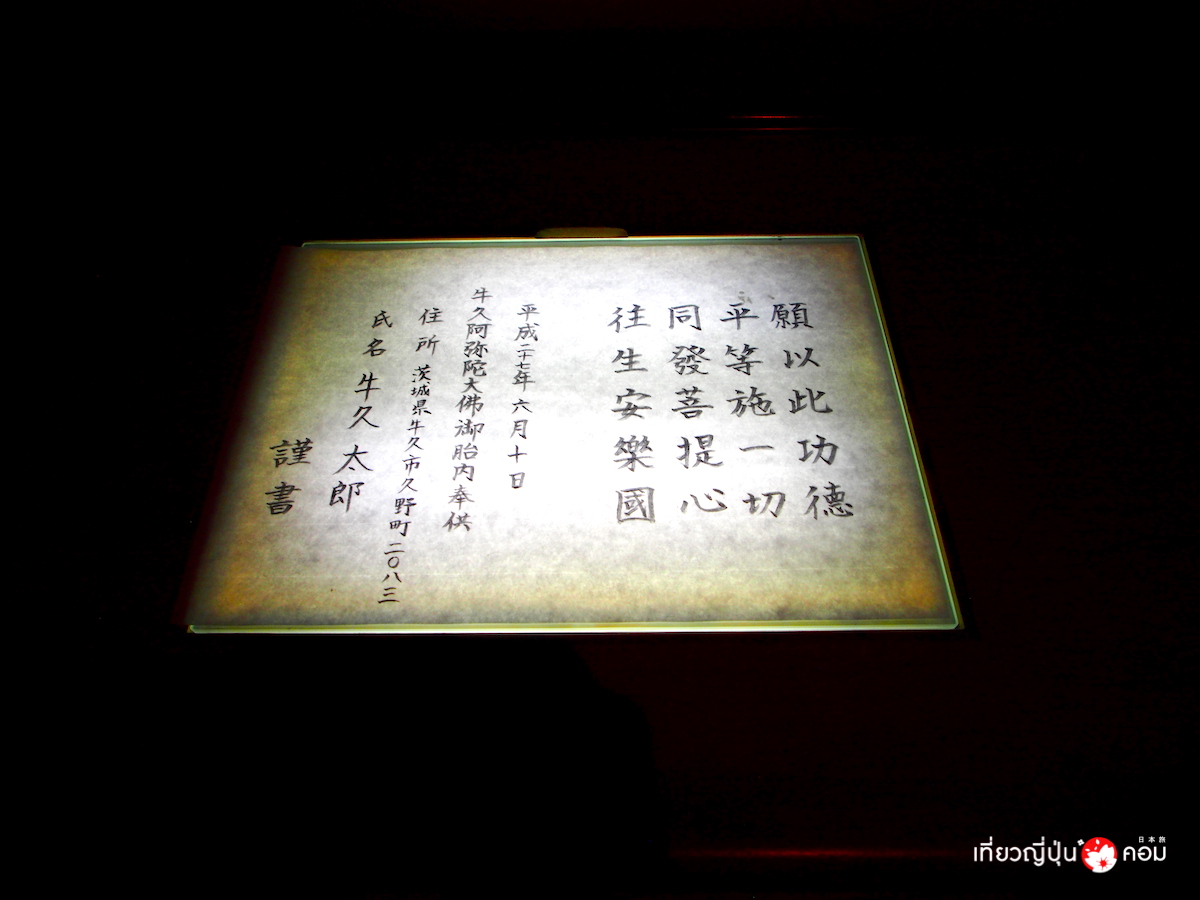 願以此功德
平等施一切
同發菩提心
往生安樂國
平成二十七年 六月十日
牛久阿弥陀大佛御胎内奉供
住所 茨城県牛久市久野町二〇八三
氏名 牛久 太郎
謹書
เที่ยวญี่ปุ่น คอม
日本旅